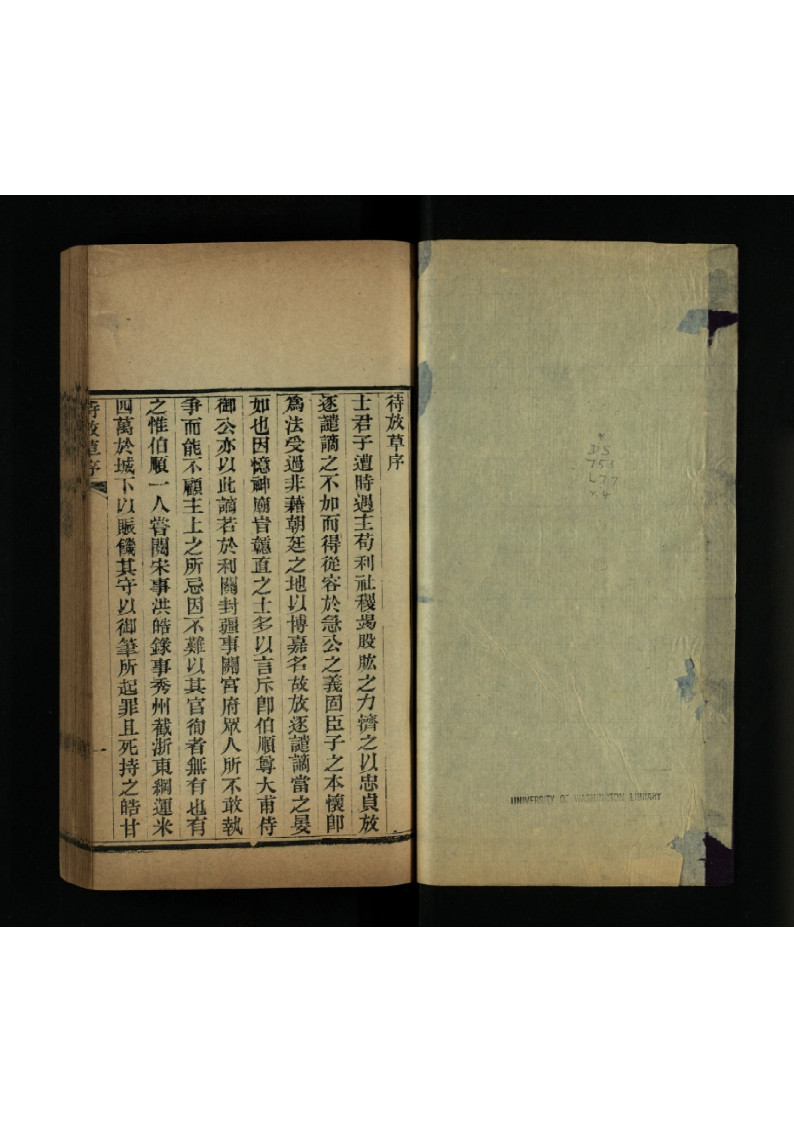 待放草序
士君子遭時遇主苟利社稷竭股肱之力濟之以忠貞放
逐譴謫之不如而得從容於急公之義固臣子之本懷卽
爲法受過非藉朝廷之地以博嘉名故放逐譴謫當之晏
如也因憶神廟旹戇直之士多以言斥卽伯順尊大甫侍
御公亦以此謫若於利關封疆事關宮府眾人所不敢執
爭而能不顧主上之所忌因不難以其官徇者無有也有
之惟伯順一人嘗閱宋事洪皓錄事秀州截浙東綱運米
四萬於城下以賑饑其守以御筆所起罪且死持之皓甘
待放草序
一
DS
753
L77
v.4
UNIVERSITY OF WASHINGTON LIBRARY